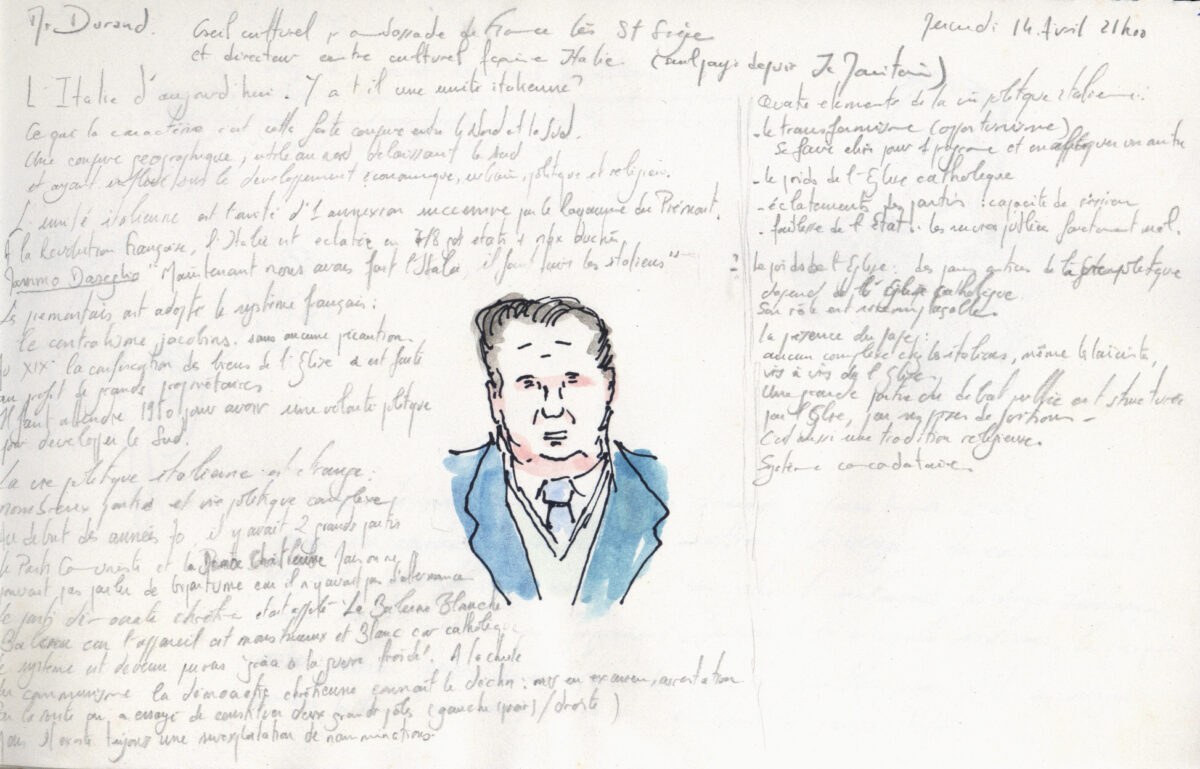 Mr. Durand. Conseil culturel ambassade de France lès St Siège
et directeur centre culturel Italie
Jeudi 14 Avril 21h00
L'Italie d'aujourd'hui. Y a t'il une unité italienne?
Ce qui la caractérise est cette forte coupure entre le Nord et le Sud.
Une coupure géographique, utile au nord, délaissant le sud
et ayant influé sur le développement économique, urbain, politique et religieux.
L'unité italienne est l'unité d'1 annexion successive par le Royaume du Piémont.
A la Révolution française, l'Italie est éclatée en 7/8 états
"Maintenant nous avons fait l'Italie, il faut faire les italiens"
Les piemontais ont adopté le système français:
le centralisme jacobin. sans aucune précaution.
XIX° la confiscation des biens de l'Eglise a est faite
au profit de grands propriétaires
Il faut attendre 1950 pour avoir une volonté politique
pour developper le Sud.
La vie politique italienne est étrange:
nombreux partis et vie politique complexe
Au début des années 70, il y avait 2 grands partis
le Parti Communiste et la Démo Chrétienne
pouvait pas parler de bipartisme car il n'y avait pas d'alternance
le parti démocrate chrétien était appelé "La Baleine Blanche"
Baleine car l'appareil est monstrueux et Blanc car catholique
le système est devenu "grâce à la guerre froide". A la chute
du communisme la démocratie chrétienne connait le déclin: mis en examen, arrestation
Par la suite on a essayé de constituer deux grands pôles (gauche / droite)
il existe toujours une
Quatre éléments de la vie politique italienne:
- le transformisme (opportunisme)
Se faire élire pour 1 programme et en appliquer un autre
- le poids de l'Eglise catholique
- éclatements des partis: capacité de
- faiblesse de l'Etat: les services publics fonctionnent mal.
Le poids de l'Eglise:
dépend de l'église catholique.
Son rôle est
La présence du pape:
aucun complexe chez les italiens, même les laïcistes,
vis à vis de l'Eglise
Une grande partie du débat public est structurée
par l'Eglise, par ses prises de positions -
C'est aussi une tradition religieuse.
Système concordataire.